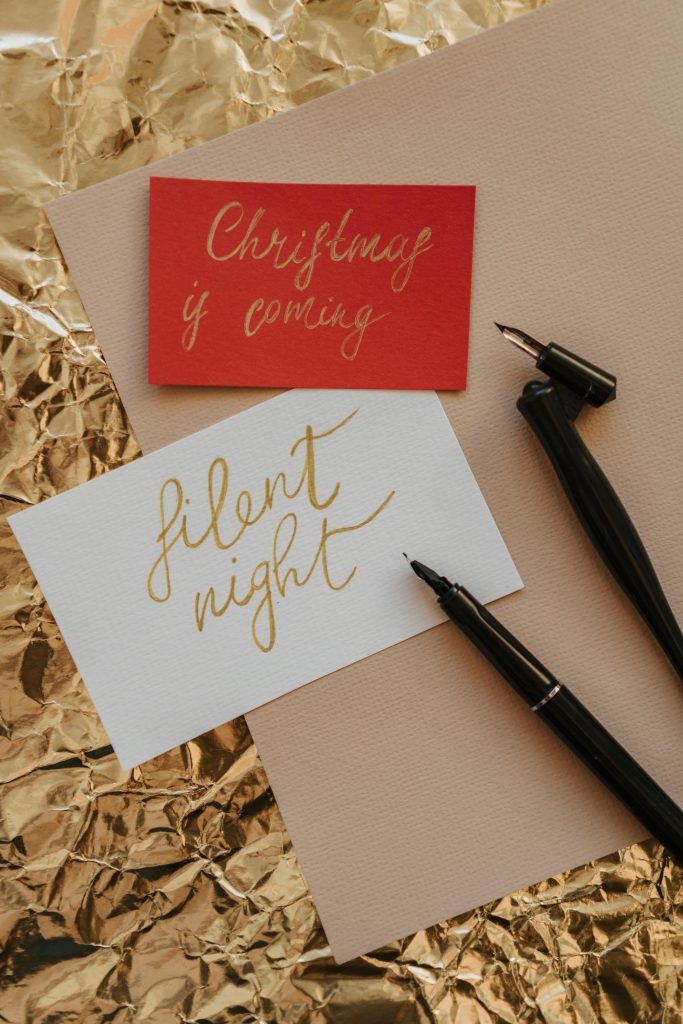 Christmas
is coming
silent
night